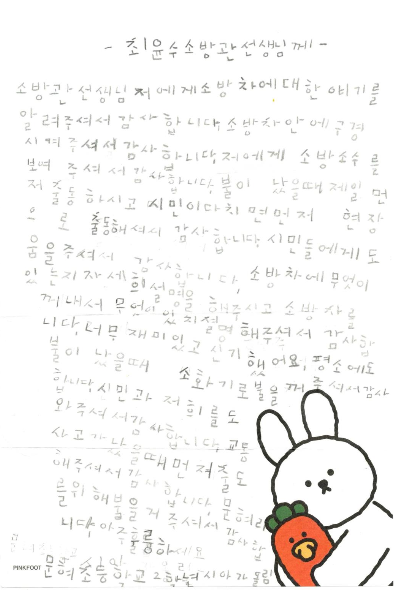 - 최윤수소방관선생님께 -
소방관선생님 저에게소방차에대한 얘기를
알려주셔서감사합니다,소방차안에구경
시켜주셔서감사합니다,저에게 소방호수를
보여 주셔서감사합니다,불이 났을때제일먼
저출동하시고시민이다치면먼저 현장
으로 출동해셔서 감사합니다,시민들에게도
움을주셔서 감사합니다, 소방차에무엇이
있는지자세희서명을 해주시고 소방차를
꺼내서 무엇이 있지설명해주셔서 감사합
니다,너무재미있고신기했어요, 평소에도
불이 났을때 소화기로불을꺼주셔서감사
합니다,시민과 저희를도
와주셔서감사합니다, 교통
사고가나을때먼저출도
해주셔서감사합니다, 문혀리
를위해불을꺼주셔서감사합
니다,아주훌륭하세요
문혀초등학교2학년시아가올림
PINKFOOT